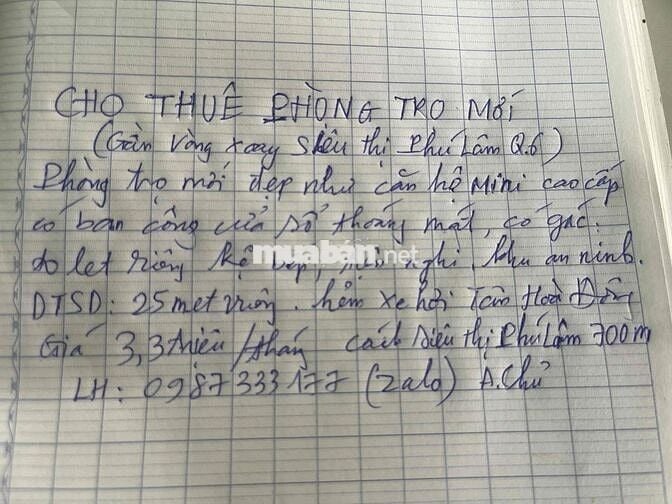 CHO THUÊ PHÒNG TRO MỚI
(Gần vòng xoay Siêu thị Phú Lâm Q.6)
Phòng trọ mới đẹp như căn hộ Mini cao cấp
có ban công cửa sổ thoáng mát, có gác.
to let riêng kệ bếp, nghi, khu an ninh.
muaban.net
DTSD: 25 met vuông. hẻm xe hơi Tân Hoà Đông
Giá 3,3 triệu/tháng cách siêu thị Phú Lâm 700m
LH: 0987333177 (zalo) A.Chử